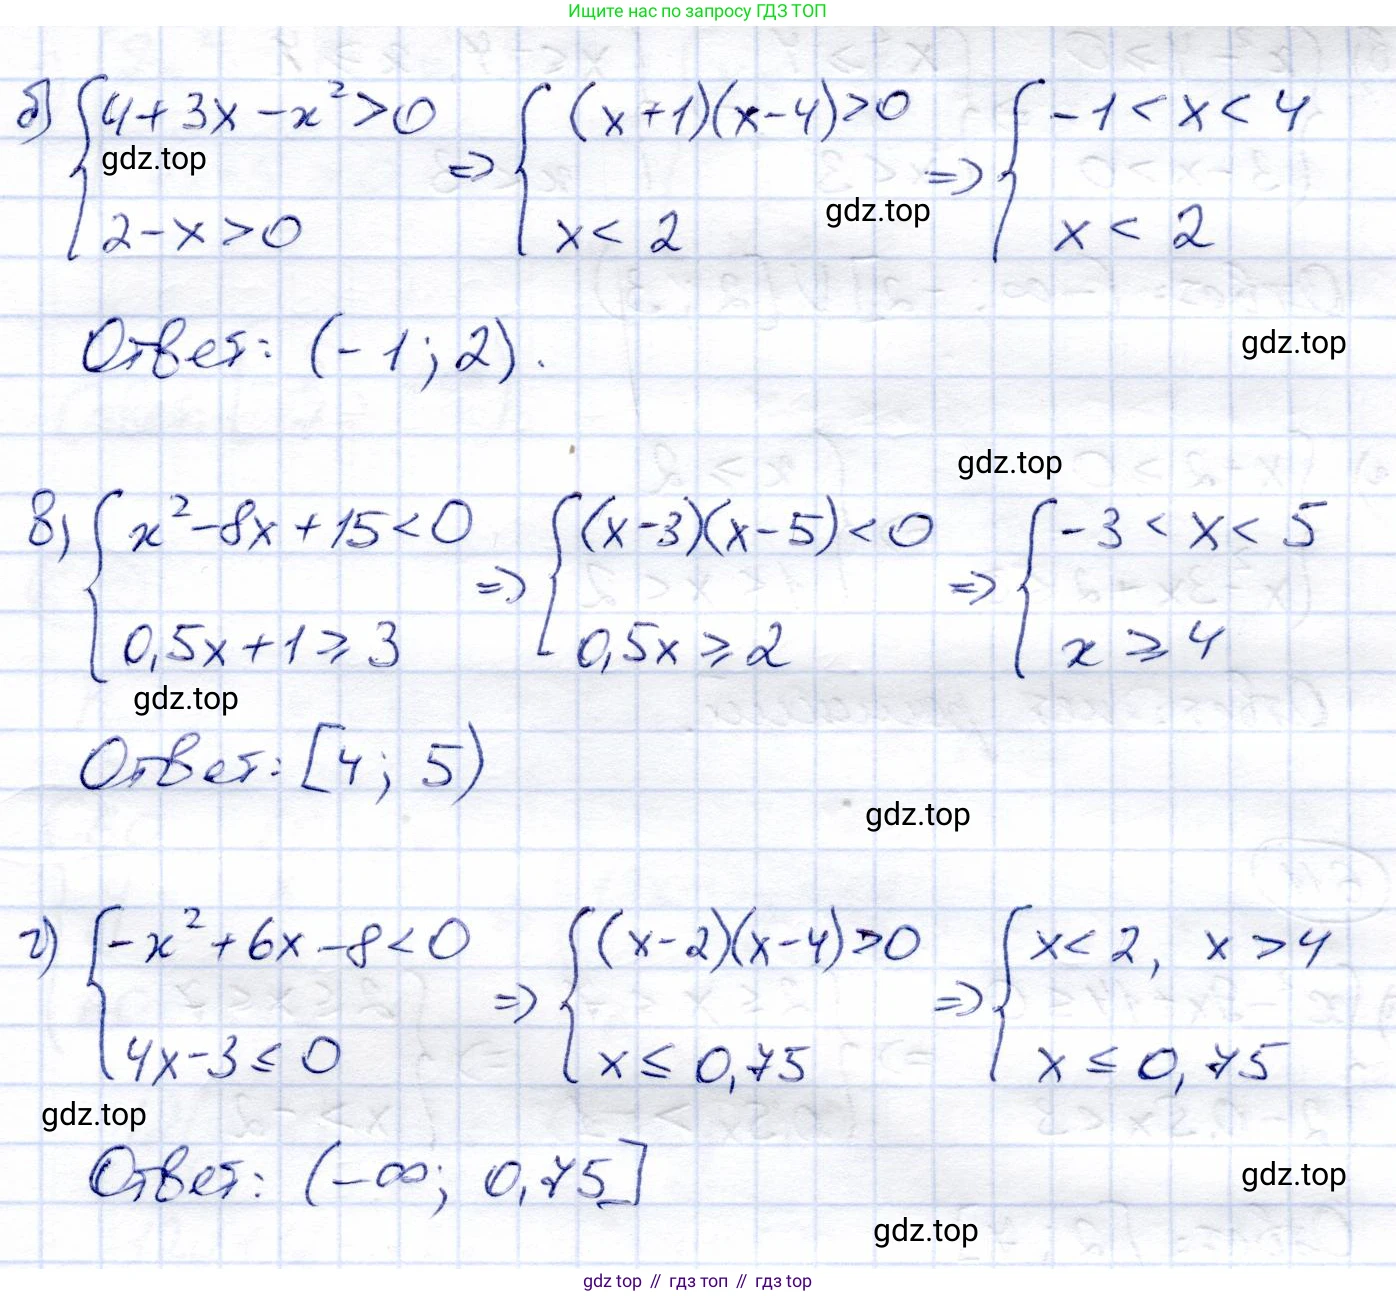 Ищите нас по запросу ГДЗ ТОП
б) { 4 + 3x - x² > 0 => { (x + 1)(x - 4) > 0 => { -1 < x < 4
gdz.top
gdz.top
2 - x > 0 x < 2 x < 2
Ответ: (-1; 2).
gdz.top
gdz.top
в) { x² - 8x + 15 < 0 => { (x - 3)(x - 5) < 0 => { -3 < x < 5
0,5x + 1 ≥ 3 0,5x ≥ 2 x ≥ 4
gdz.top
Ответ: [4; 5)
gdz.top
г) { -x² + 6x - 8 < 0 => { (x - 2)(x - 4) > 0 => { x < 2, x > 4
4x - 3 ≤ 0 x ≤ 0,75 x ≤ 0,75
gdz.top
Ответ: (-∞; 0,75]
gdz.top
gdz.top
gdz top // гдз топ // гдз top